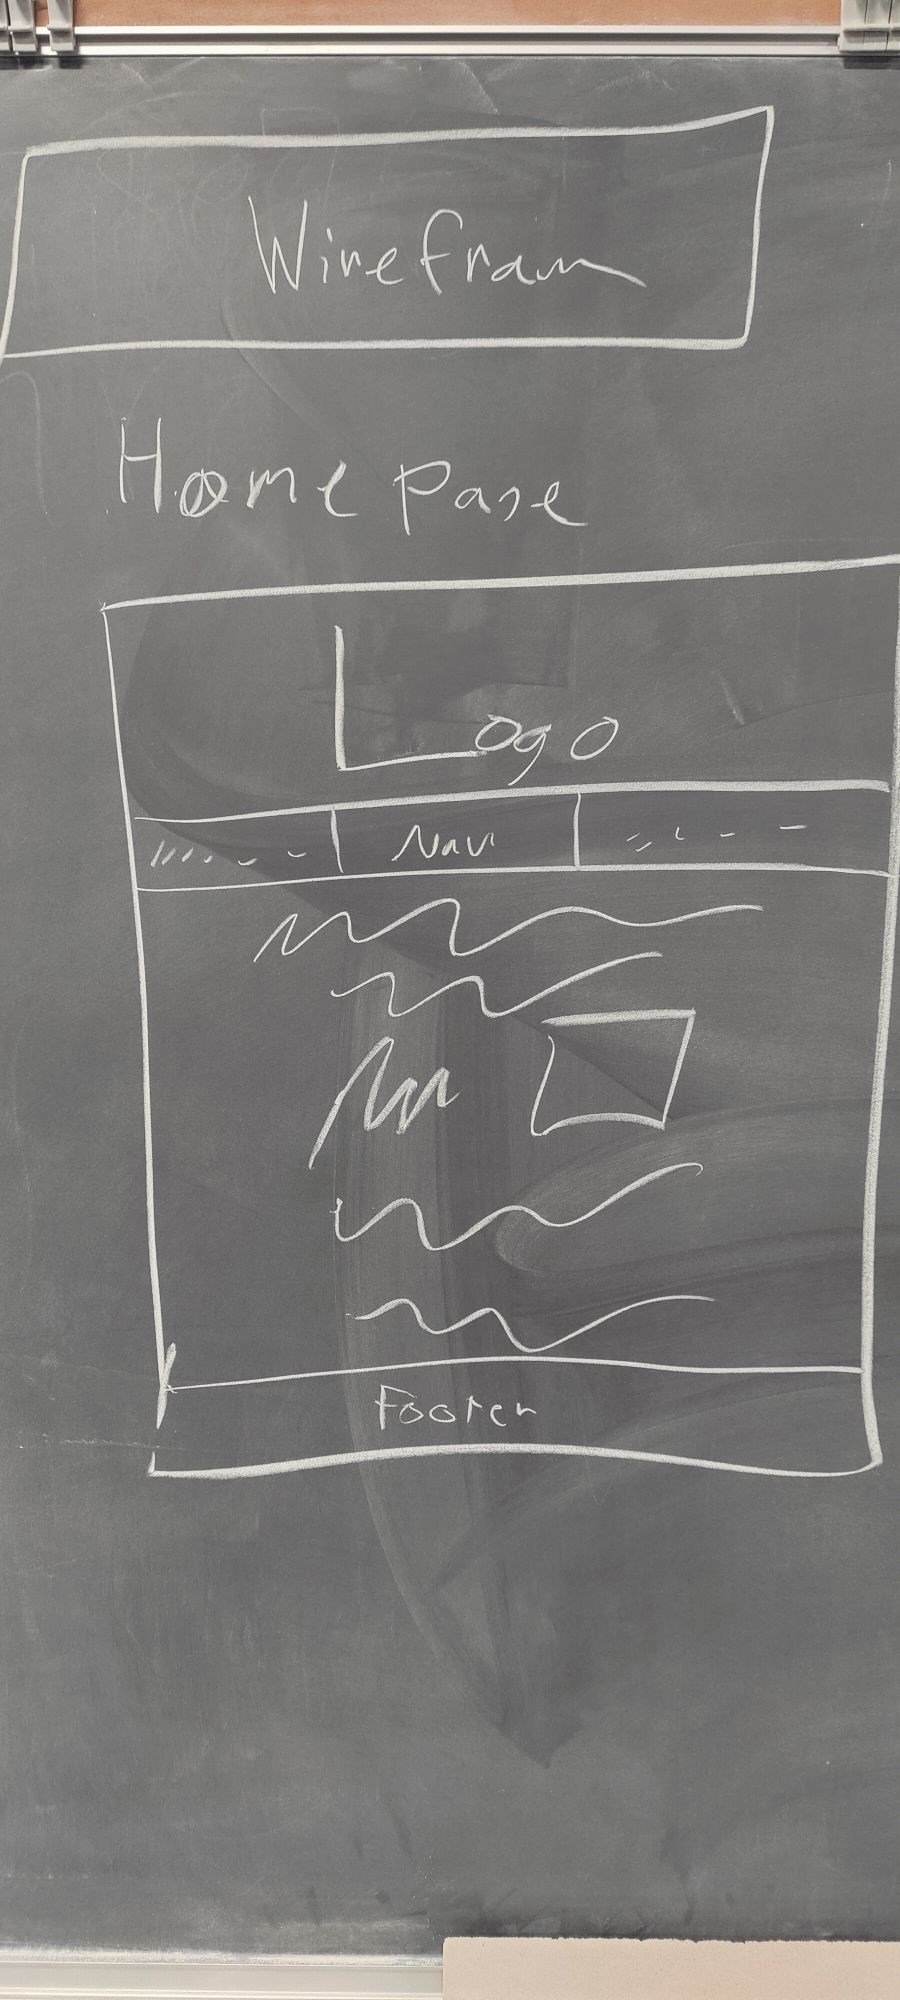 Wirefram
Home Page
Logo
Navi
Footer